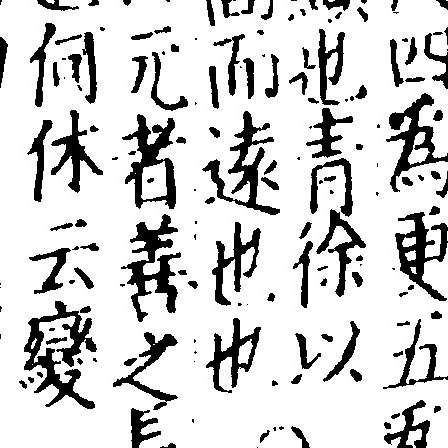 四為更五
也青徐以
而遠也也
元者善之長
何休云變